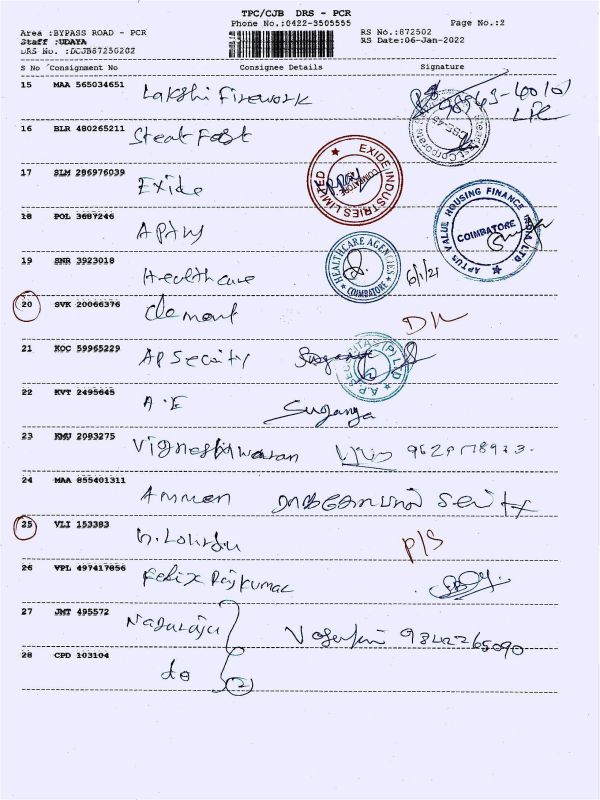 TPC/CJB DRS - PCR
Phone No.:0422-3505555
Page No.:2
Area :BYPASS ROAD - PCR
RS No.:872502
Staff :UDAYA
RS Date:06-Jan-2022
DRS No. :DCJB87250202
S No Consignment No Consignee Details Signature
15 MAA 565034651 Lakshi Firework
16 BLR 480265211 Steat Fast
17 SLM 296976039 Exide
EXIDE INDUSTRIES LIMITED COIMBATORE
18 POL 3687246 Aptus
APTUS VALUE HOUSING FINANCE INDIA LTD COIMBATORE
19 SNR 3923018 Healthcare
HEALTHCARE AGENCIES COIMBATORE 6/1/21
20 SVK 20066376 Clemont
21 KOC 59965229 AP Secuity
A.P SECURITAS (P) LTD
22 KVT 2495645 A.E Suganya
23 KMU 2093275
24 MAA 855401311 Ammen
25 VLI 153383 P/S
26 VPL 497417856 Felix Rajkumar
27 JMT 495572 Nagaraju 9842265090
28 CPD 103104 do